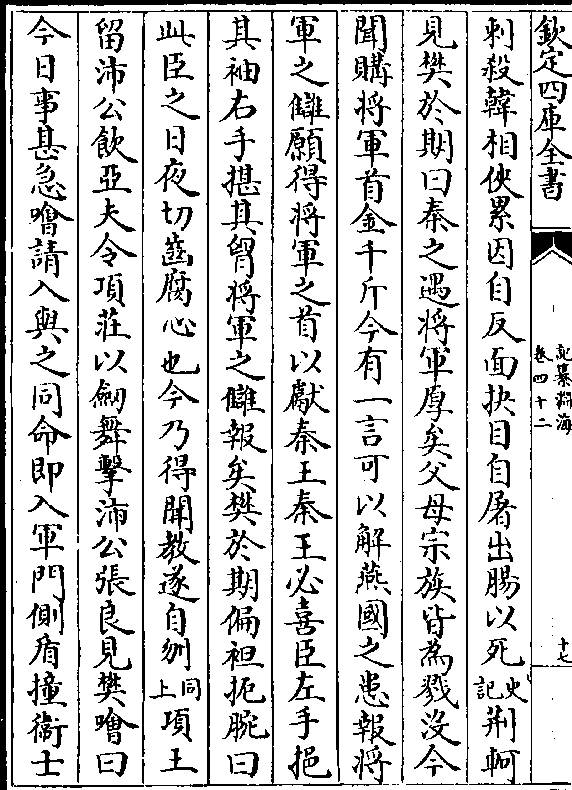 欽定四庫全書
記纂淵海
卷四十二
十七
刺殺韓相俠累因自反面抉目自屠出腸以死史記荆軻
見樊於期曰秦之遇將軍厚矣父母宗族皆為戮沒今
聞購將軍首金千斤今有一言可以解燕國之患報將
軍之讎願得將軍之首以獻秦王秦王必喜臣左手挹
其袖右手揕其胷將軍之讎報矣樊於期偏袒扼腕曰
此臣之日夜切齒腐心也今乃得聞教遂自刎同上項王
留沛公飲亞夫令項莊以劒舞擊沛公張良見樊噲曰
今日事甚急噲請入與之同命即入軍門側盾撞衞士